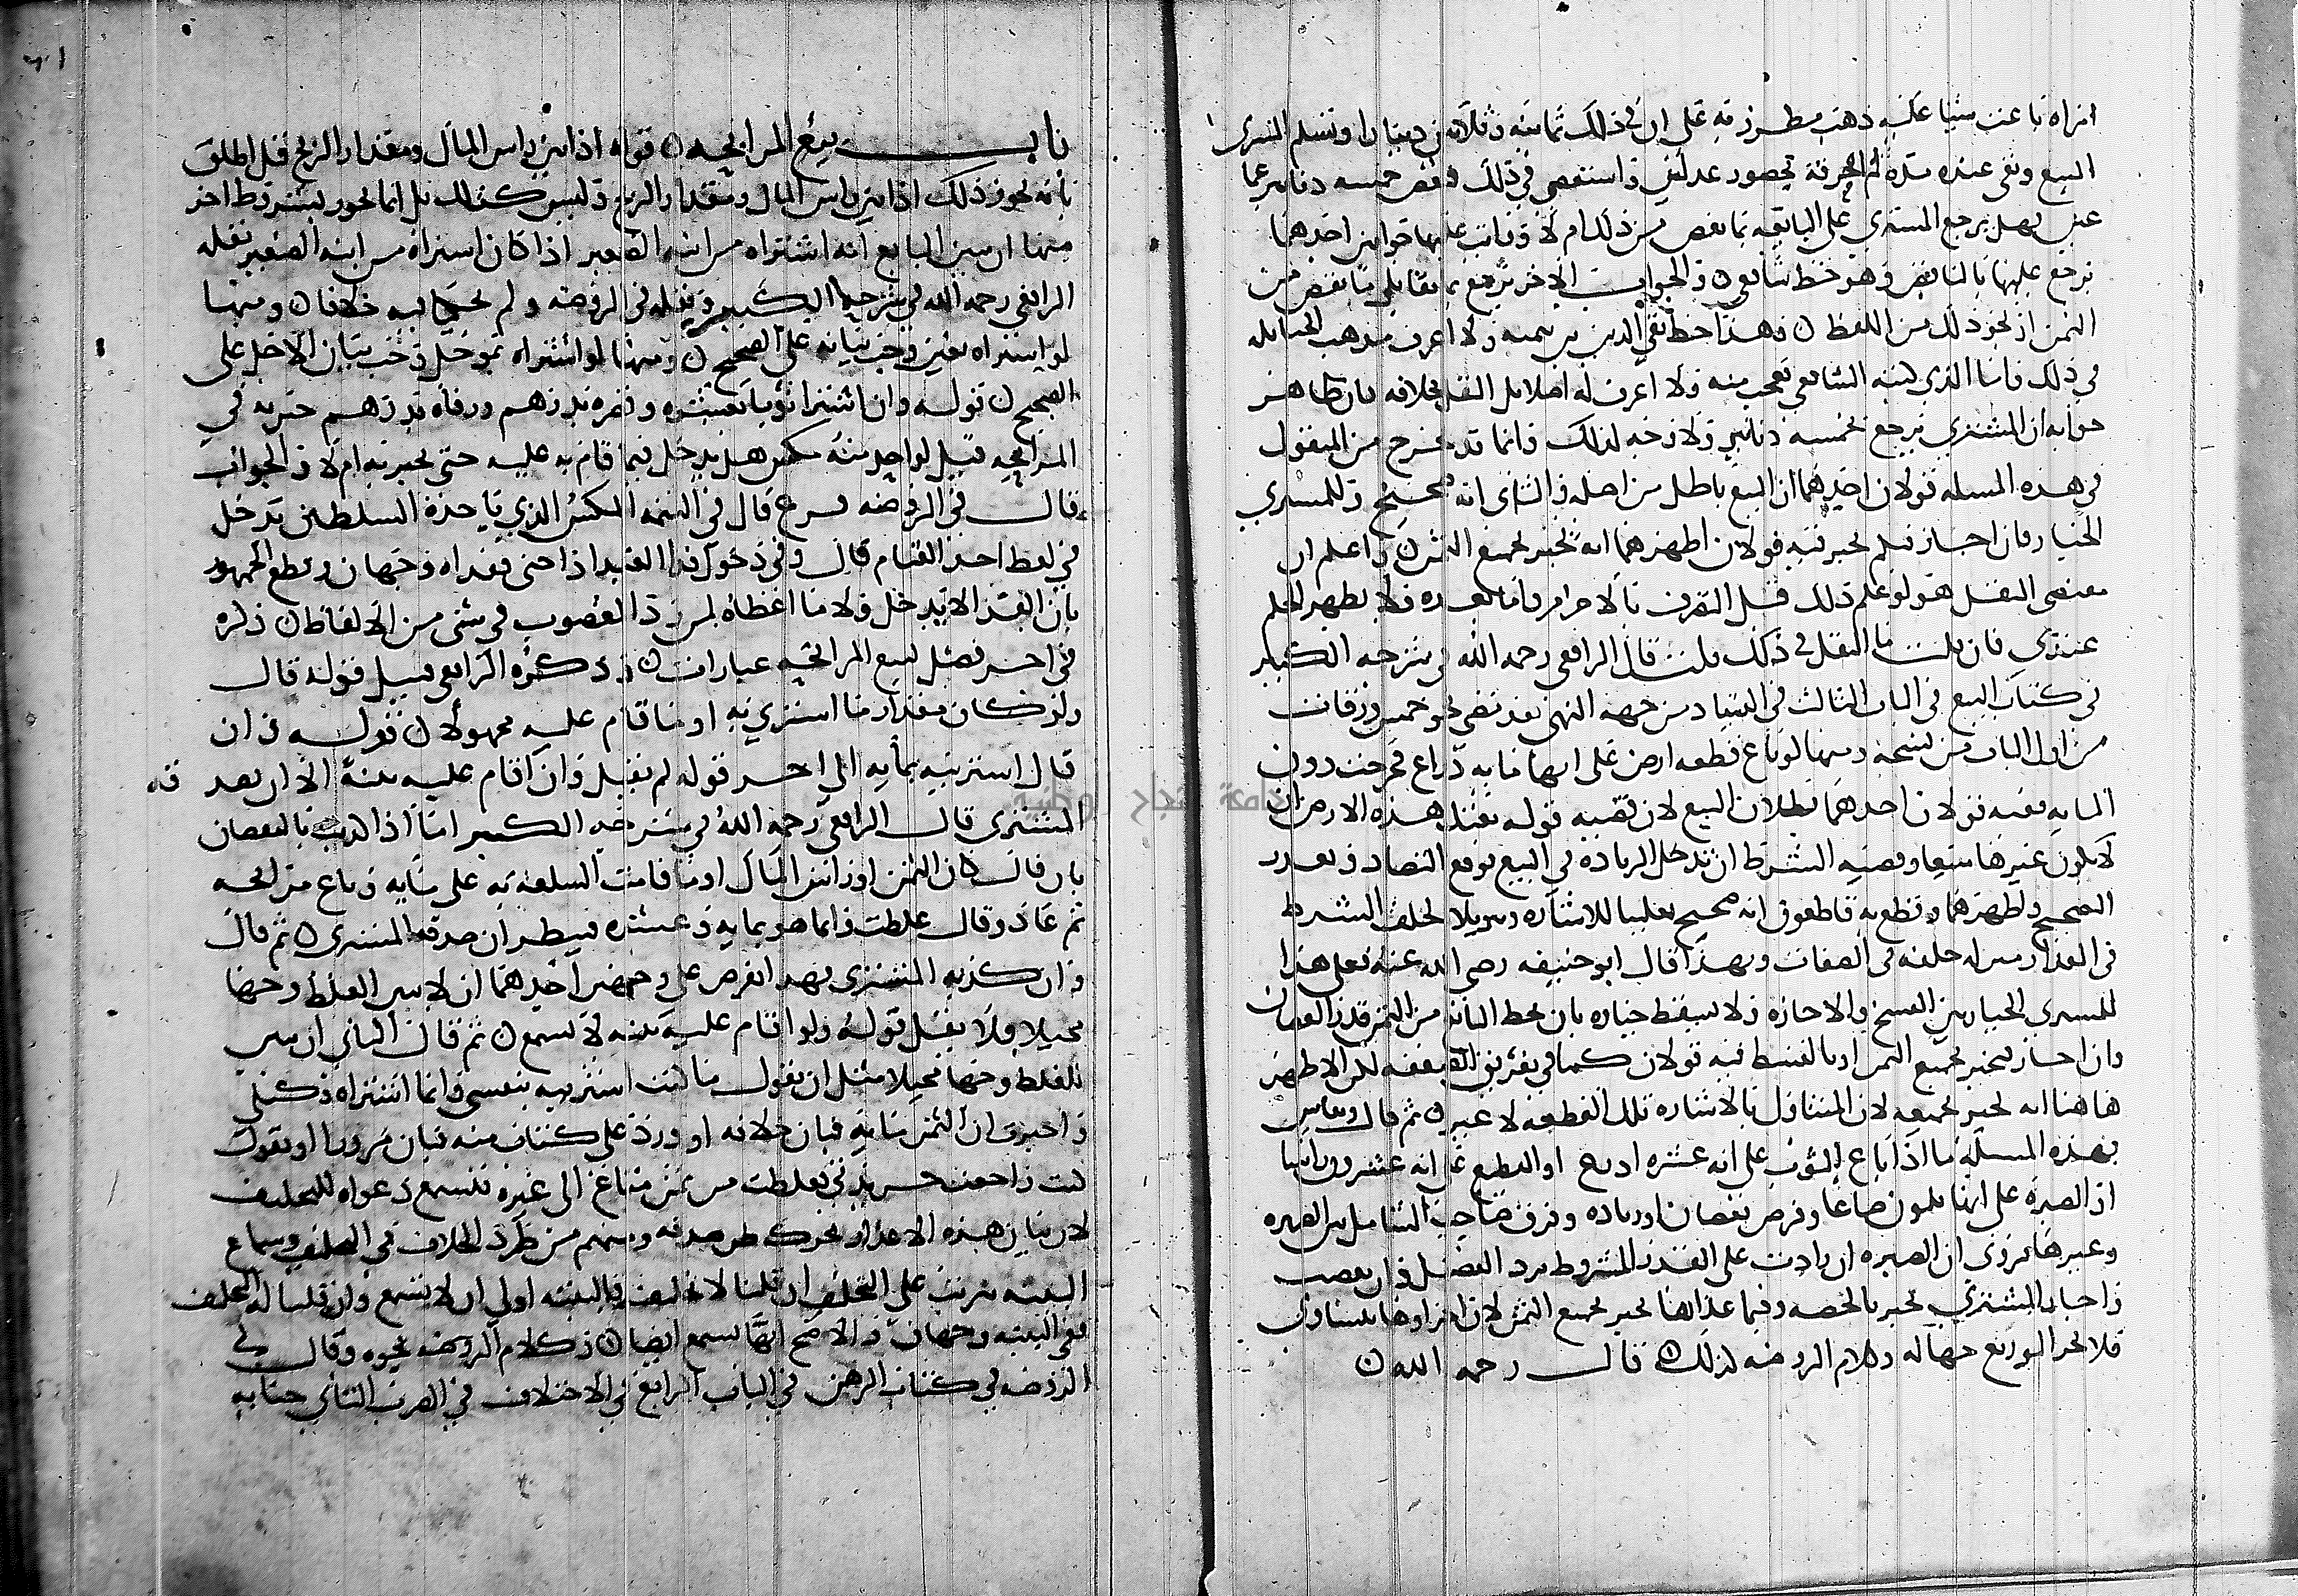 امراه باعت شيا عليه ذهب مطرز به على ان في ذلك ثمانيه وثلاثين دينارا وتسلم المشتري
المبيع وبقي عنده مده ثم بحضور عدلين واستقصى في ذلك فنقص خمسه دنانير عما
عين فهل يرجع المشتري على البايعه بما نقص من ذلك ام لا وكانت عليها جوابين احدهما
يرجع عليها بالناقص وهو خط شافعي والجواب الاخر يرجع بمقابل ما نقص من
الثمن او نحو ذلك من اللفظ وهذا خط تقي الدين بن تيميه ولا اعرف مذهب الحنابله
في ذلك واما الذي كتبه الشافعي فعجب منه ولا اعرف له اصلا بل النقل بخلافه فان ظاهر
جوابه ان المشتري يرجع بخمسه دنانير ولا وجه لذلك وانما قد يخرج من المنقول
في هذه المسله قولان احدهما ان البيع باطل من اصله والثاني انه صحيح وللمشتري
الخيار فان اجاز فبكم يخير فيه قولان اظهرهما انه يخير بجميع الثمن واعلم ان
مقتضى النقل هو لو علم ذلك قبل التصرف بالاحرام واما بعده فلا يظهر الحكم
عندي فان قلت ما النقل في ذلك قلت قال الرافعي رحمه الله في شرحه الكبير
في كتاب البيع في الباب الثالث في الفساد من جهه النهي بعد مضي نحو خمس ورقات
من اول الباب من نسخه ومنها لو باع قطعه ارض على انها مايه ذراع فخرجت دون
المايه ففيه قولان احدهما بطلان البيع لان قضيه قوله بعتك هذه الارض ان
لا يكون غيرها مبيعا وقضيه الشرط ان تدخل الزياده في البيع فوقع التضاد وتعذر
الصحيح واظهرهما وقطع به قاطعون انه صحيح تغليبا للاشاره وتنزيلا لخلف الشرط
في المقدار منزله خلفه في الصفات وبهذا قال ابو حنيفه رضي الله عنه فعلى هذا
للمشتري الخيار بين الفسخ والاجازه ولا يسقط خياره بان يحط البايع من الثمن قدر النقصان
وان اجاز يخير بجميع الثمن او بالقسط فيه قولان كما في تفريق الصفقه لكن الاظهر
هاهنا انه يخير بجميعه لان المتناول بالاشاره تلك القطعه لا غير ثم قال ويقاس
بهذه المسله ما اذا باع الثوب على انه عشره اذرع او القطيع على انه عشرون راسا
او الصبره على انها ثلاثون صاعا وفرض نقصان او زياده وفرق صاحب الشامل بين الصبره
وغيرها فروى ان الصبره ان زادت على القدر المشروط يرد الفضل وان نقصت
واجاز المشتري يخير بالحصه وفيما عداها يخير بجميع الثمن لان اجزاوها تتساوى
فلا يجر التوزيع جهاله وكلام الروضه كذلك قال رحمه الله
باب بيع المرابحه قوله اذا بين راس المال ومقدار الربح قيل اطلق
بانه يجوز ذلك اذا بين راس المال ومقدار الربح وليس كذلك بل انما يجوز بشروط اخر
منها ان يبين البايع انه اشتراه من ابنه الصغير اذا كان اشتراه من ابنه الصغير نقله
الرافعي رحمه الله في شرحه الكبير ونقله في الروضه ولم يحكيا فيه خلافا ومنها
لو اشتراه بغبن وجب بيانه على الصحيح ومنها لو اشتراه بموجل وجب بيان الاجل على
الصحيح قوله وان اشترا ثوبا بعشره وقصره بدرهم ورفاه بدرهم خبر به في
المرابحه قيل لو اخذ منه مكس هل يدخل فيما قام به عليه حتى يخبر به ام لا والجواب
قال في الروضه فرع قال في التتمه المكس الذي ياخذه السلطان يدخل
في لفظ احد القيام قال وفي دخول فدا العبد اذا جنى ففداه وجهان وقطع الجمهور
بان الفدا لا يدخل ولا ما اعطاه لمن رد المغصوب في شي من الالفاظ ذكره
في اخر فصل لبيع المرابحه عبارات وذكره الرافعي قبيل قوله قال
ولو كان مقدار ما اشتري به او ما قام عليه مجهولا قوله وان
قال اشتريته بمايه الى اخر قوله لم يقبل وان اقام عليه بينه الا ان يصدقه
المشتري قال الرافعي رحمه الله في شرحه الكبير اما اذا كذب بالنقصان
بان قال كان الثمن او راس المال او ما قامت السلعه به علي مايه وباع مرابحه
ثم عاد وقال غلطت وانما هو بمايه وعشره فينظر ان صدقه المشتري ثم قال
وان كذبه المشتري فهذا يفرض على وجهين احدهما ان لا يبين للغلط وجها
محيلا فلا يقبل قوله ولو اقام عليه بينه لا تسمع ثم قال الثاني ان يبين
للغلط وجها محيلا مثل ان يقول ما كنت اشتريته بنفسي وانما اشتراه وكيلي
واخبرت ان الثمن مايه فبان خلافه او ورد علي كتاب منه فبان مزورا او يقول
كنت راجعت جريدتي فغلطت من ثمن متاع الى غيره فتسمع دعواه للتحليف
لان بيان هذه الاعذار يحرك ظن صدقه ومنهم من طرد الخلاف في التحليف وسماع
البينه يترتب على التحليف ان قلنا لا تحليف فالبينه اولى ان لا تسمع وان قلنا له التحليف
ففي البينه وجهان والاصح انها تسمع ايضا وكلام الروضه نحوه وقال في
الروضه في كتاب الرهن في الباب الرابع في الاختلاف في الضرب الثاني جنايه